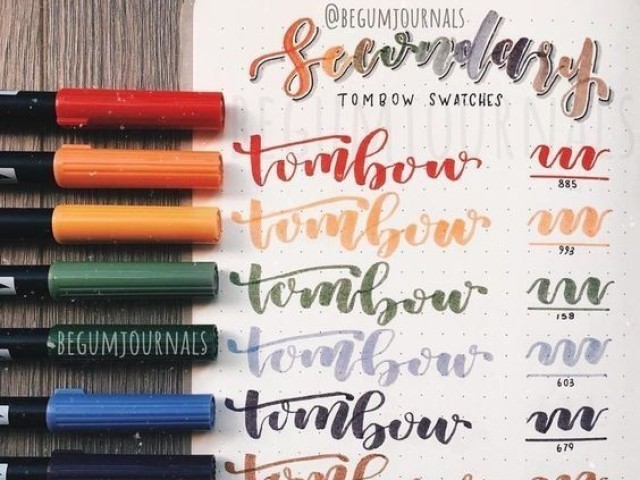 @BEGUMJOURNALS
Secondary
TOMBOW SWATCHES
BEGUMJOURNALS
tombow 885
tombow 993
tombow 158
BEGUMJOURNALS
tombow 603
tombow 679
tombow